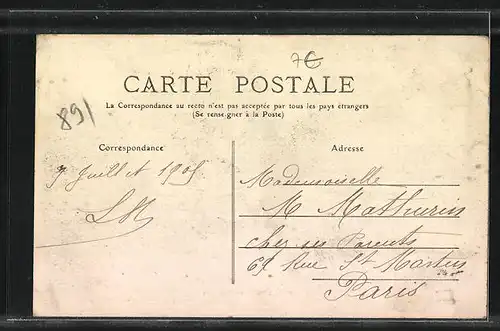 7€
CARTE POSTALE
La Correspondance au recto n'est pas acceptée par tous les pays étrangers
(Se renseigner à la Poste)
891
Correspondance
Adresse
7 Juillet 1905
LH
Mademoiselle
M Mathurin
chez ses Parents
67 Rue St Martin
Paris